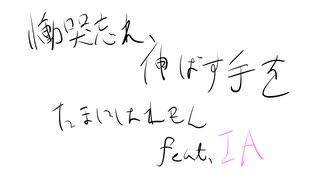 慟哭忘れ、
伸ばす手を
たまにはれもん
feat. IA